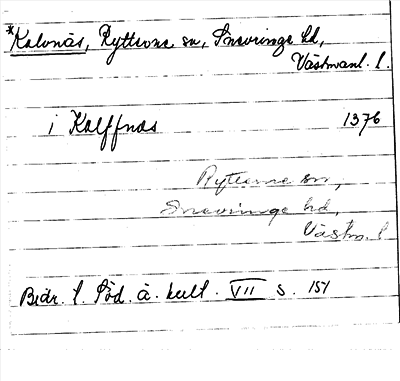 *Kalvnäs, Rytterne sn, Snevringe hd,
Västmanl. l.
i Kalffnäs 1376
Rytterne sn,
Snevringe hd,
Västm. l
Bidr. t. Söd. å. kult. VII s. 151